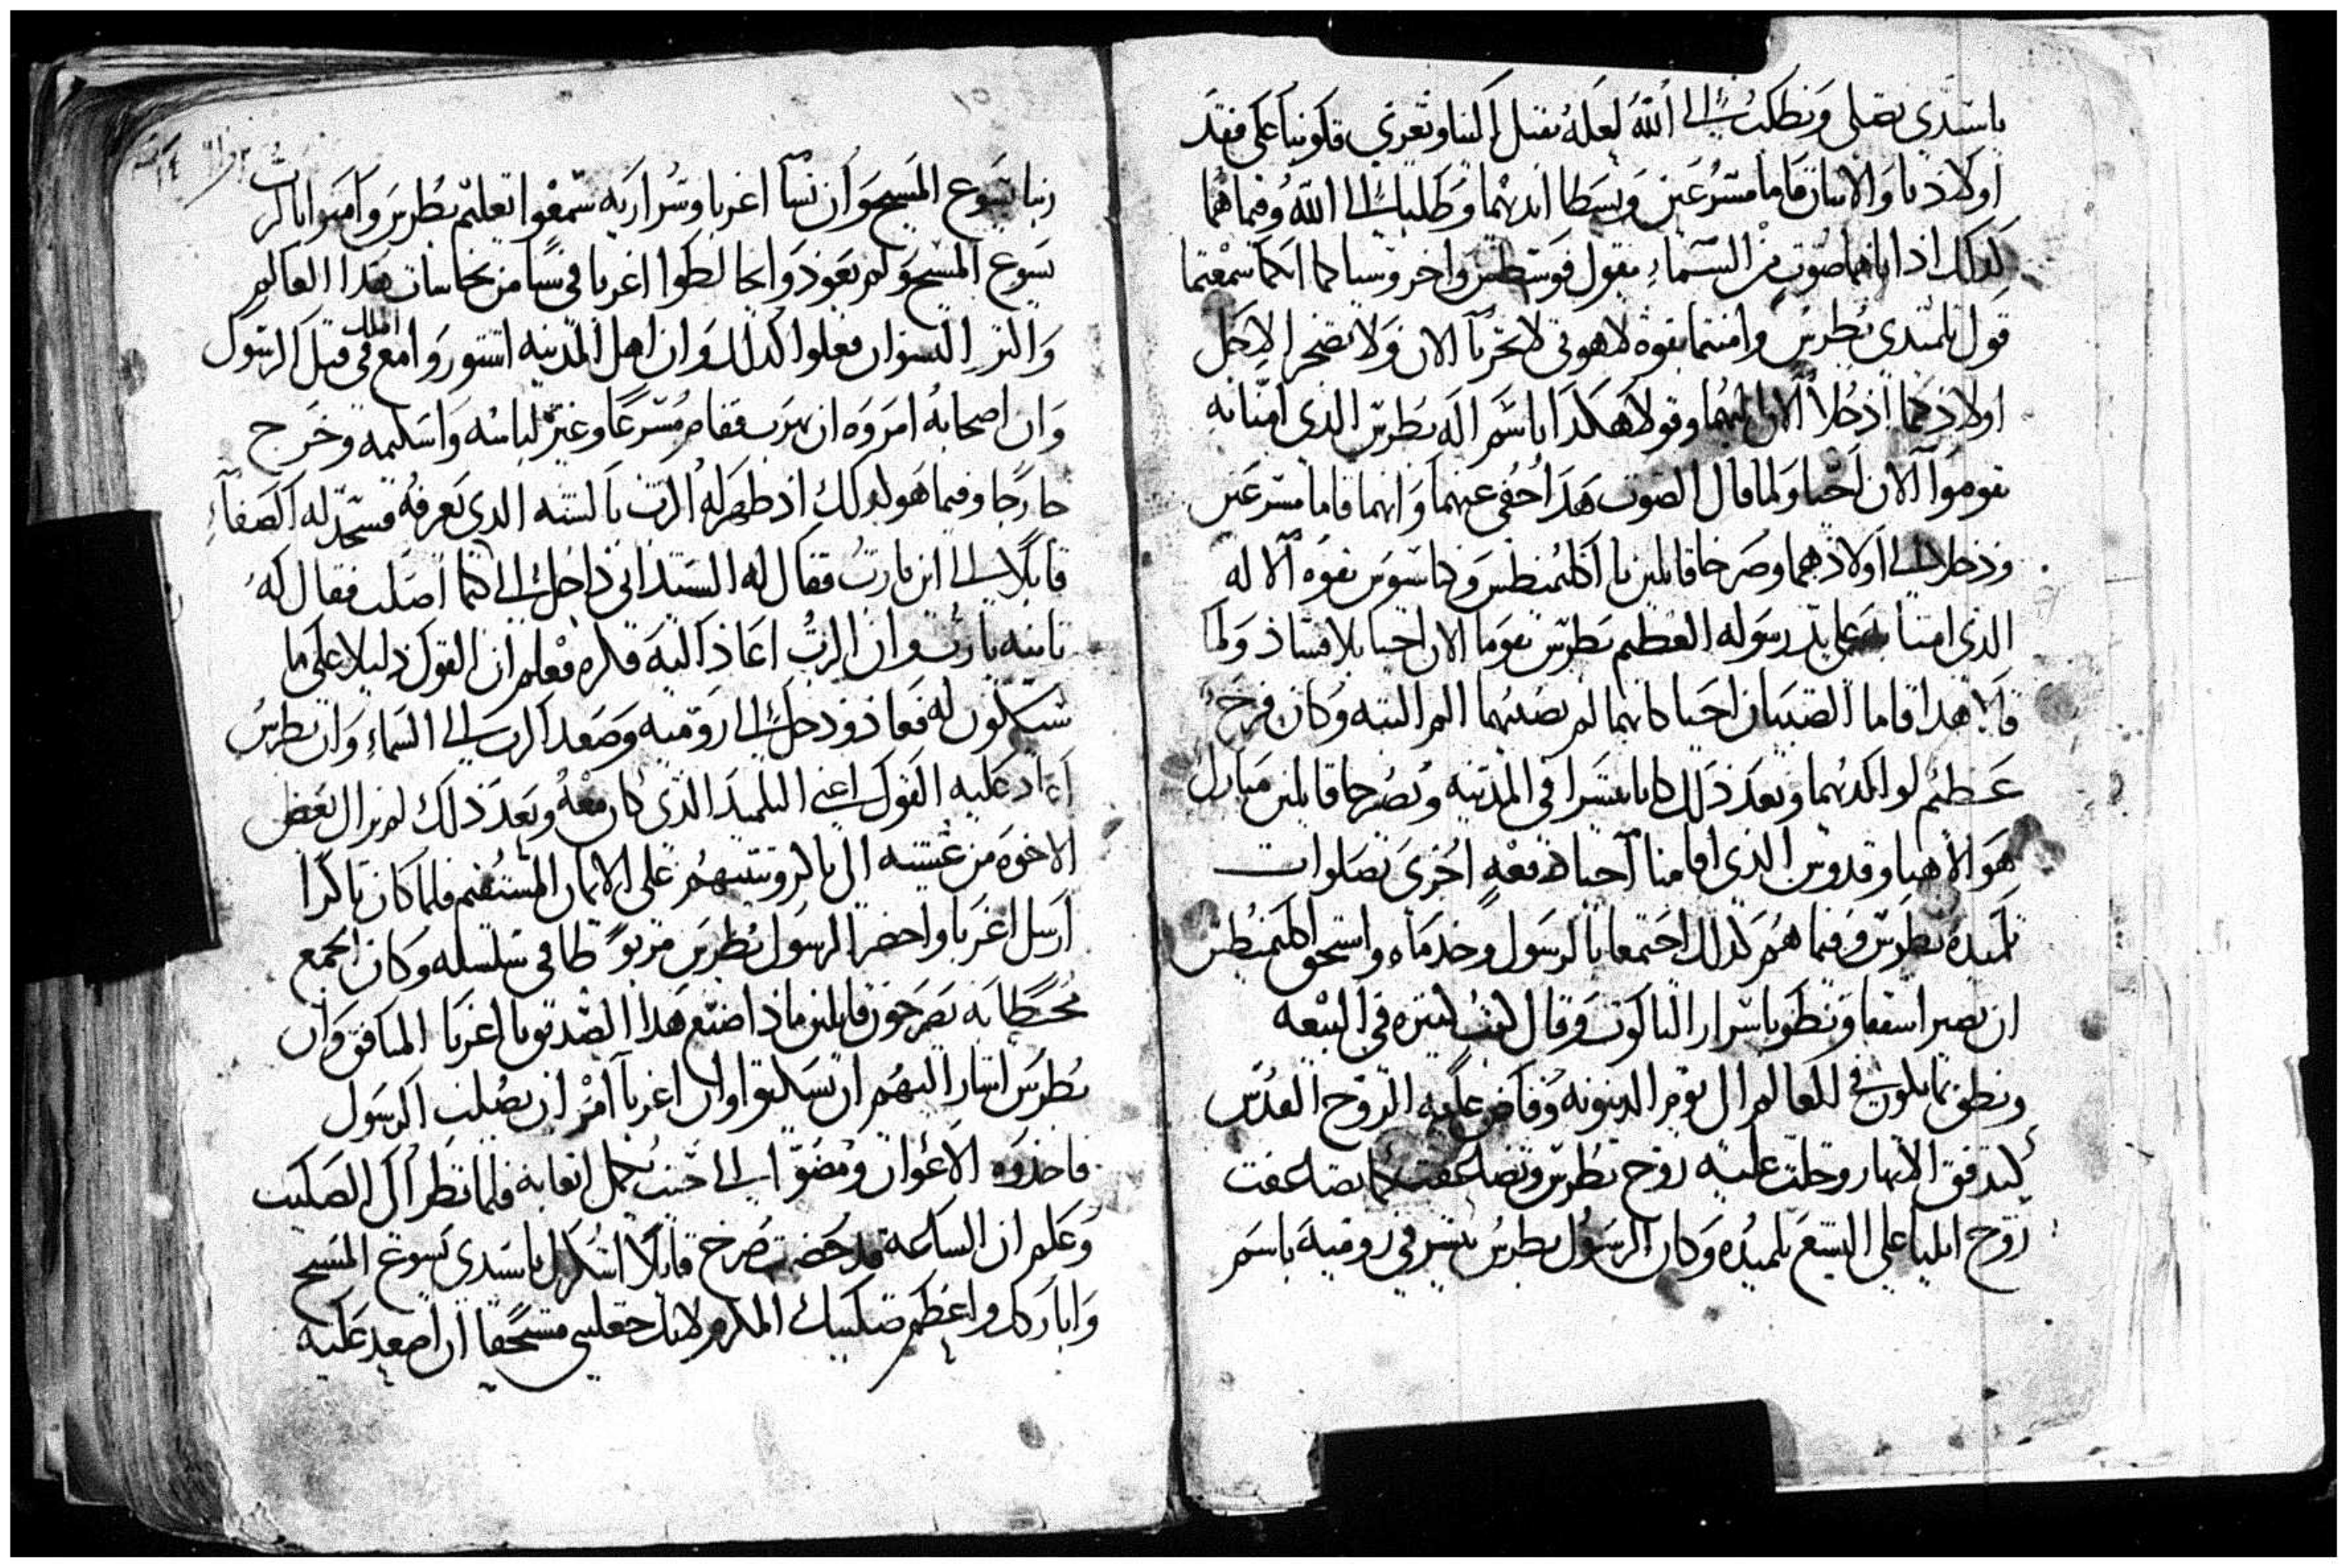 ياسيدي نصلي ونطلب الى الله لعله يقبل الينا ويعزي قلوبنا على فقد
اولادنا والاثنان قاما مسرعين وبسطا ايديهما وطلبا الى الله وفيما هما
كذلك اذ اتاهما صوت من السماء يقول فوسطس واخروسيا كما انكما سمعتما
قول تلميدي بطرس وامنتما بقوه لاهوتي لا تحزنا الان ولا تضجرا لاجل
اولادكما ادخلا الان اليهما وقولا هكدا باسم اله بطرس الدي امنا به
تقوموا الان احيا ولما قال الصوت هدا اخفي عنهما وانهما قاما مسرعين
ودخلا الى اولادهما وصرخا قايلين يا اكليمنطس و بقوه الاله
الدي امنا به على يد رسوله العظيم بطرس تقوما الان احيا بلا فساد ولما
قالا هدا قاما الصبيان احيا كانهما لم يصبهما الم البته وكان فرح
عظيم لوالديهما وبعد ذلك كانا يبشرا في المدينه ويصرخا قايلين مبارك
هو الاهنا وقدوس الدي اقامنا احيا دفعه اخرى بصلوات
تلميده بطرس وفيما هم كدلك اجتمعا بالرسول وخدماه واستحق اكليمنطس
ان يصير اسقفا ونطق باسرار التاكوت وقال كتب كتيره في البيعه
ونطق بما يكون في العالم الى يوم الدينونه وفاض عليه الروح القدس
كتدفق الانهار وحلت عليه روح بطرس وتضاعفت كما تضاعفت
روح ايليا على اليشع تلميده وكان الرسول بطرس يبشر في روميه باسم
ربنا يسوع المسيح وان نسا اغربا وسراريه سمعوا تعليم بطرس وامنوا بالرب
يسوع المسيح ولم يعود وايخالطوا اغربا في شيا من نجاسات هدا العالم
واكتر النسوان فعلوا كدلك وان اهل المدينه استوروا مع الملك في قتل الرسول
وان اصحابه امروه ان يهرب فقام مسرعا وغير لباسه واسكيمه وخرج
خارجا وفيما هو كدلك اذ ظهر له الرب بالشبه الدي يعرفه فسجد له الصفا
قايلا الى اين يارب فقال له السيد اني داخل الى كيما اصلب فقال له
تانيه يارب وان الرب اعاد اليه فكره فعلم ان القول دليلا على ما
سيكون له فعاد ودخل الى روميه وصعد الرب الى السماء وان بطرس
اعاد عليه القول اعني التلميد الدي كان معه وبعد ذلك لم يزال يعض
الاخوه من عشيه الى باكر ويتبتهم على الايمان المستقيم فلما كان باكرا
ارسل اغربا واحضر الرسول بطرس مربوطا في سلسله وكان الجمع
محتطا به يصرخون قايلين ماذا صنع هدا الصديق يا اغربا المنافق وان
بطرس اشار اليهم ان يسكتوا وان اغربا امر ان يصلب الرسول
فاخدوه الاعوان ومضوا الى حيث تحمل اتعابه فلما نظر الى الصليب
وعلم ان الساعه قد حضرت صرخ قايلا اشكرك ياسيدي يسوع المسيح
وابارك واعظم صليبك المكرم لانك جعلتني مستحقا ان اصعد عليه